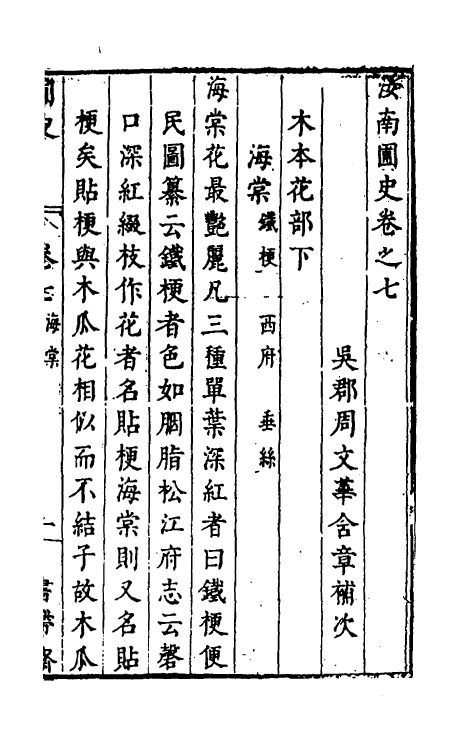 汝南圃史卷之七
吳郡周文華含章補次
木本花部下
海棠 鐵梗 西府 垂絲
海棠花最艷麗凡三種單葉深紅者曰鐵梗便
民圖纂云鐵梗者色如胭脂松江府志云磬
口深紅綴枝作花者名貼梗海棠則又名貼
梗矣貼梗與木瓜花相似而不結子故木瓜
圃史 卷七 海棠 一 書帶齋